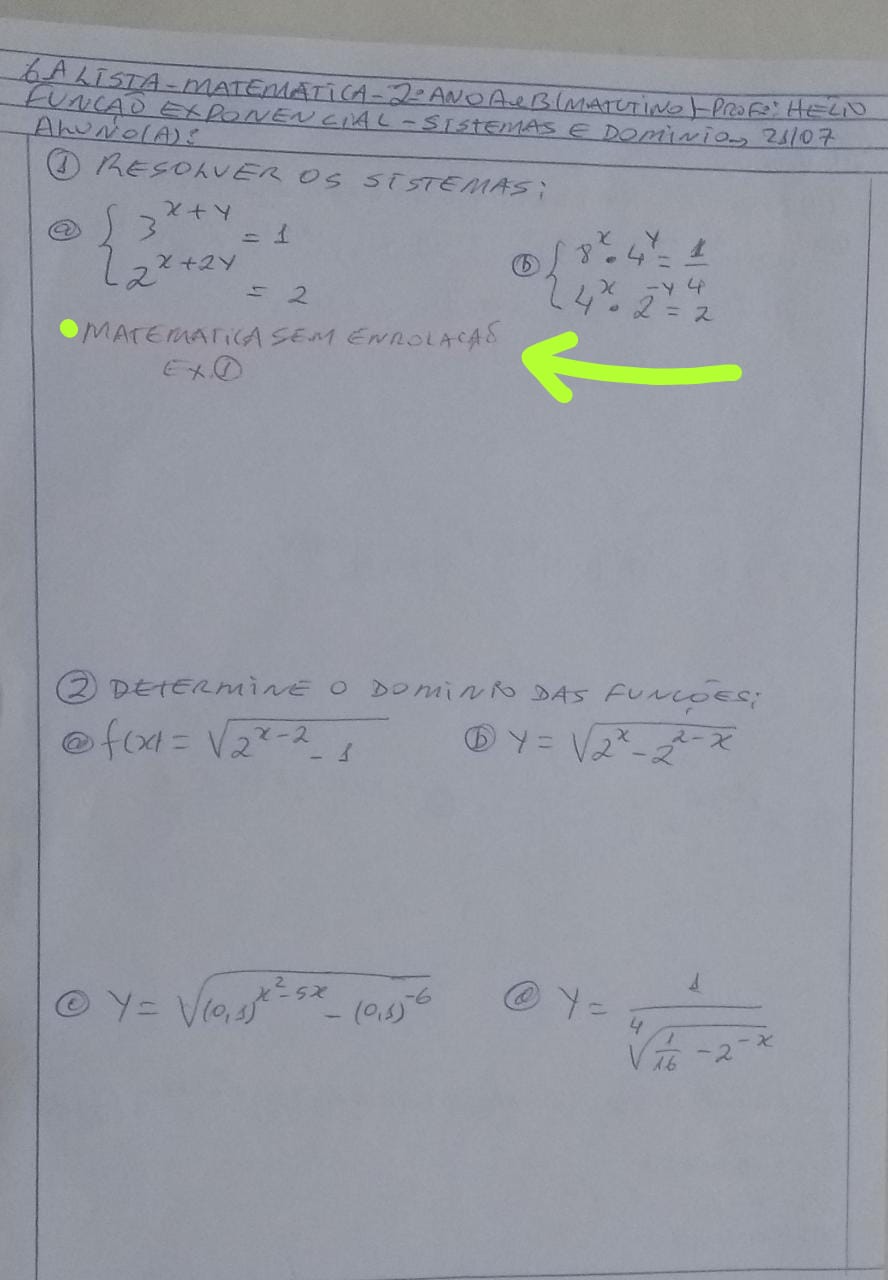 6A LISTA - MATEMÁTICA - 2º ANO A e B (MATUTINO) - PROFº: HÉLIO
FUNÇÃO EXPONENCIAL - SISTEMAS E DOMINIO → 21/07
ALUNO(A):
① RESOLVER OS SISTEMAS:
ⓐ { 3^{x+y} = 1
2^{x+2y} = 2
ⓑ { 8^x . 4^y = 1/4
4^x . 2^{-y} = 2
• MATEMATICA SEM ENROLAÇÃO
EX. ①
② DETERMINE O DOMINIO DAS FUNÇÕES:
ⓐ f(x) = √(2^{x-2} - 1)
ⓑ Y = √(2^x - 2^{2-x})
ⓒ Y = √((0,1)^{x²-5x} - (0,1)^{-6})
ⓓ Y = 1/⁴√(1/16 - 2^{-x})